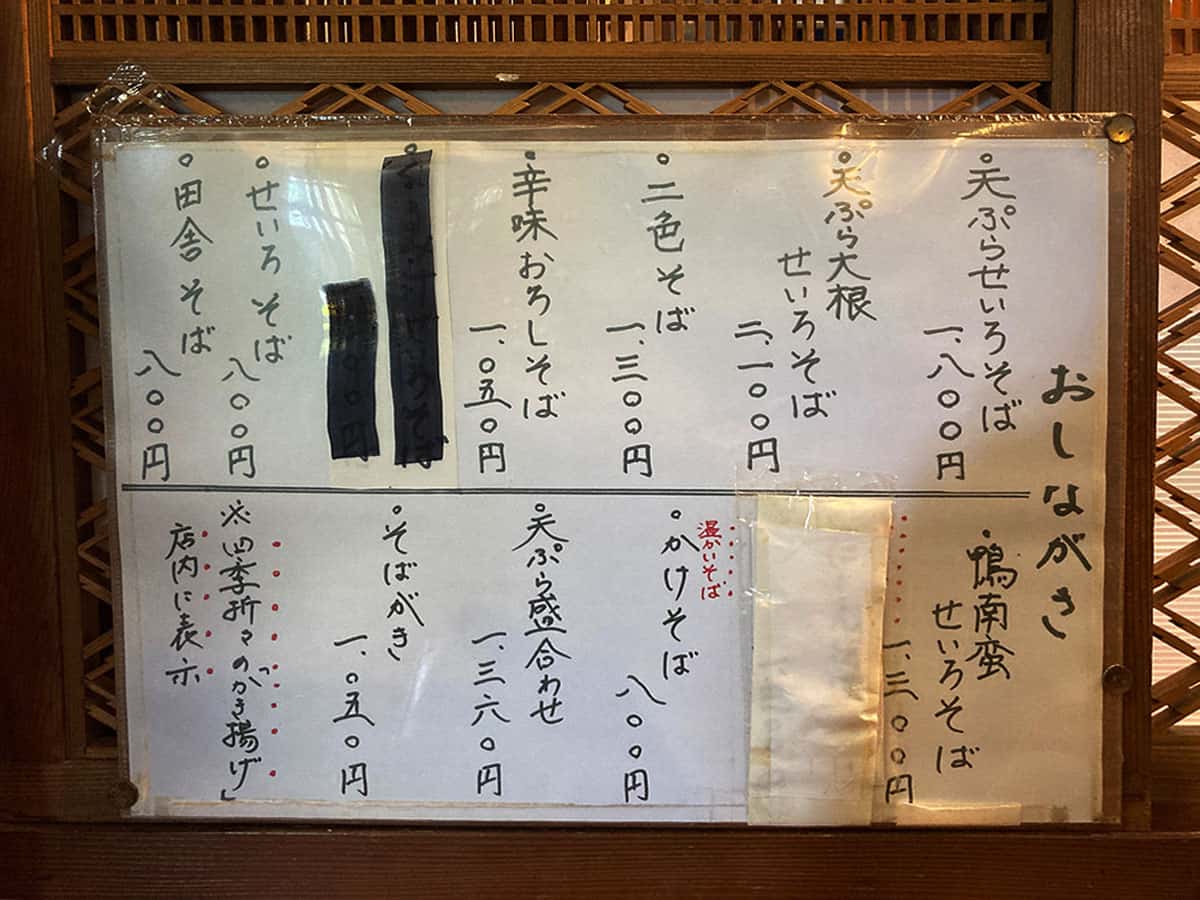 おしながき
天ぷらせいろそば
一、八〇〇円
天ぷら大根
せいろそば
二、一〇〇円
二色そば
一、三〇〇円
辛味おろしそば
一、〇五〇円
せいろそば
八〇〇円
田舎そば
八〇〇円
鴨南蛮
せいろそば
一、三〇〇円
温かいそば
かけそば
八〇〇円
天ぷら盛合わせ
一、三六〇円
そばがき
一、〇五〇円
※四季折々の「かき揚げ」
店内に表示